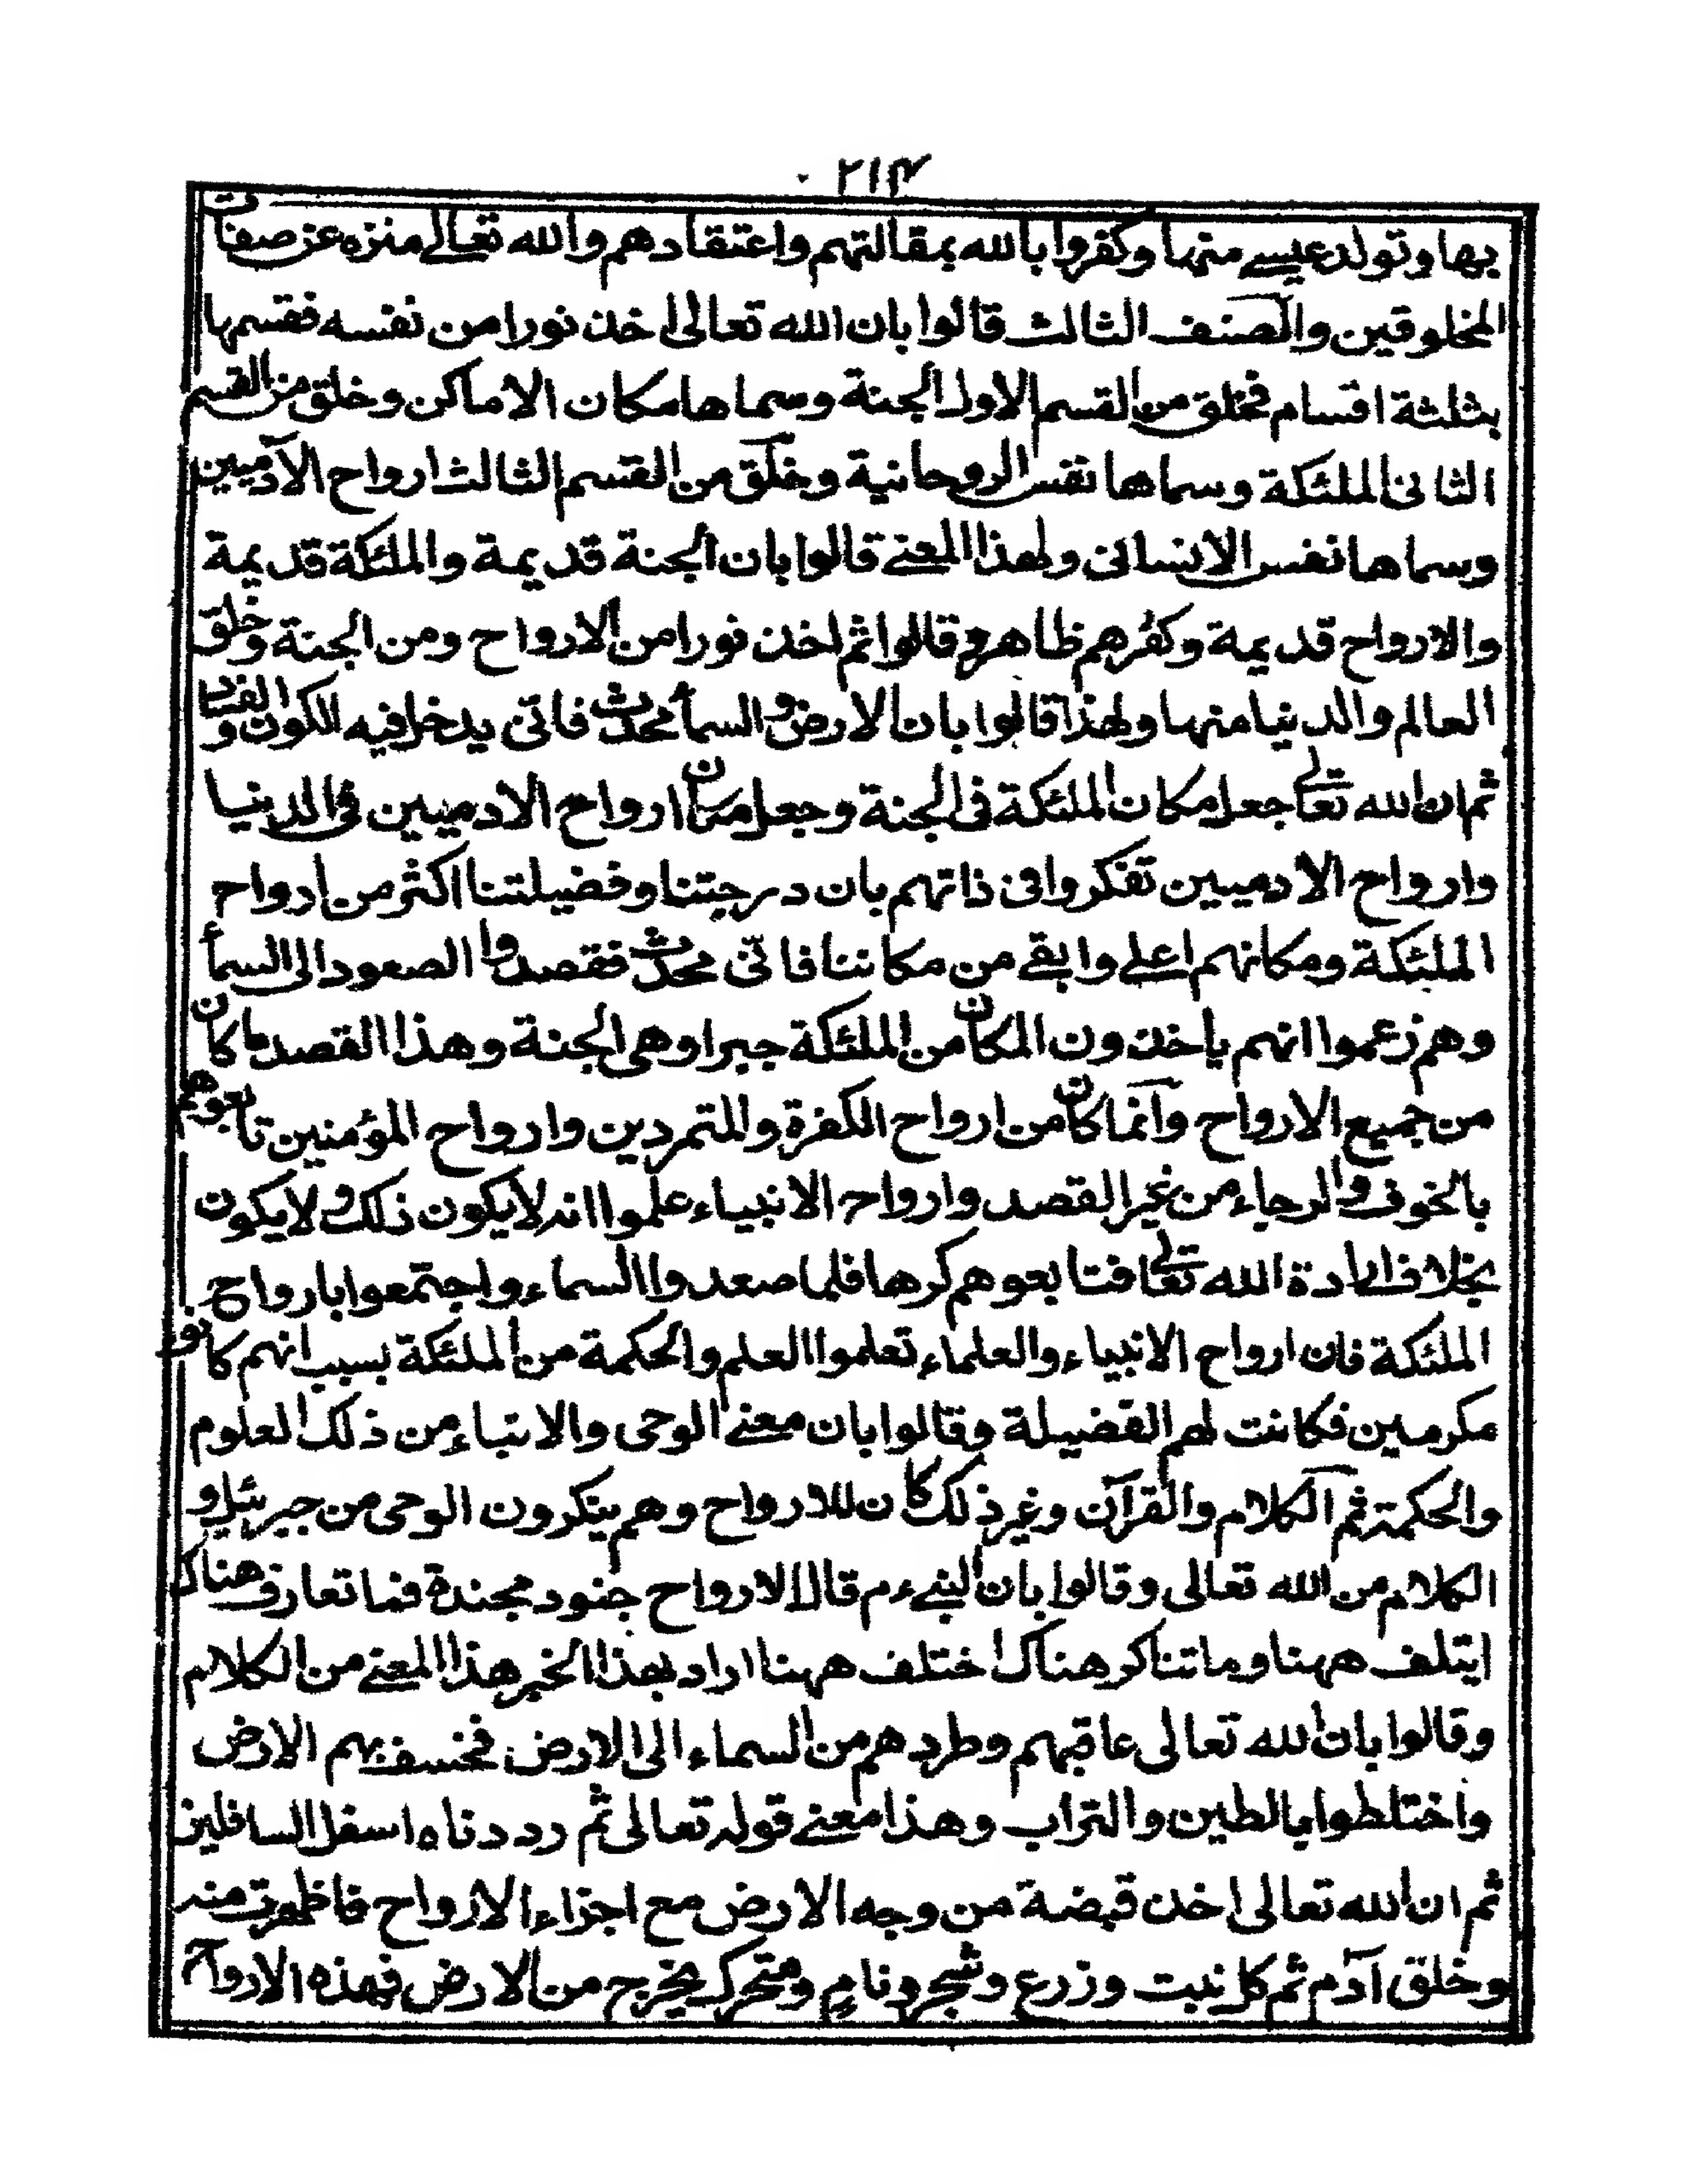 ٢١٣
بها وتولد عيسے منها وكفروا بالله بمقالتهم واعتقادهم والله تعالے منزه عن صفات
المخلوقين والصنف الثالث قالوا بان الله تعالى اخذ نورا من نفسه فقسمها
بثلثة اقسام فخلق من القسم الاول الجنة وسماها مكان الاماكن وخلق من القسم
الثانى الملئكة وسماها نفس الروحانية وخلق من القسم الثالث ارواح الآدميين
وسماها نفس الانسانى ولهذا المعنے قالوا بان الجنة قديمة والملئكة قديمة
والارواح قديمة وكفرهم ظاهر وقالوا ثم اخذ نورا من الارواح ومن الجنة وخلق
العالم والدنيا منها ولهذا قالوا بان الارض والسمأ محدث فاتى يدخل فيه الكون والفساد
ثم ان الله تعالى جعل مكان الملئكة فى الجنة وجعل مكان ارواح الادميين فى الدنيا
وارواح الادميين تفكروا فى ذاتهم بان درجتنا وفضيلتنا اكثر من ارواح
الملئكة ومكانهم اعلى وابقے من مكاننا فاتى محدث فقصدوا الصعود الى السمأ
وهم زعموا انهم ياخذون المكان من الملئكة جبرا وهى الجنة وهذا القصد ما كان
من جميع الارواح وانما كان من ارواح الكفرة والمتمردين وارواح المؤمنين تابعوهم
بالخوف والرجاء من غير القصد وارواح الانبياء علموا انه لا يكون ذلك ولا يكون
بخلاف ارادة الله تعالى فتابعوهم كرها فلما صعدوا السماء واجتمعوا بارواح
الملئكة فان ارواح الانبياء والعلماء تعلموا العلم والحكمة من الملئكة بسبب انهم كانوا
مكرمين فكانت لهم الفضيلة وقالوا بان معنے الوحى والانباء من ذلك العلوم
والحكمة ثم الكلام والقرآن وغير ذلك كان للارواح وهم ينكرون الوحى من جبرئيل و
الكلام من الله تعالى وقالوا بان النبے ءم قال الارواح جنود مجندة فما تعارف هناك
ايتلف ههنا وما تناكر هناك اختلف ههنا اراد بهذا الخبر هذا المعنے من الكلام
وقالوا بان الله تعالى عاقبهم وطردهم من السماء الى الارض فخسف بهم الارض
واختلطوا بالطين والتراب وهذا معنے قوله تعالى ثم رددناه اسفل السافلين
ثم ان الله تعالى اخذ قبضة من وجه الارض مع اجزاء الارواح فاظهرت منه
وخلق آدم ثم كل نبت وزرع وشجر ونام ومتحرك يخرج من الارض فهذه الارواح